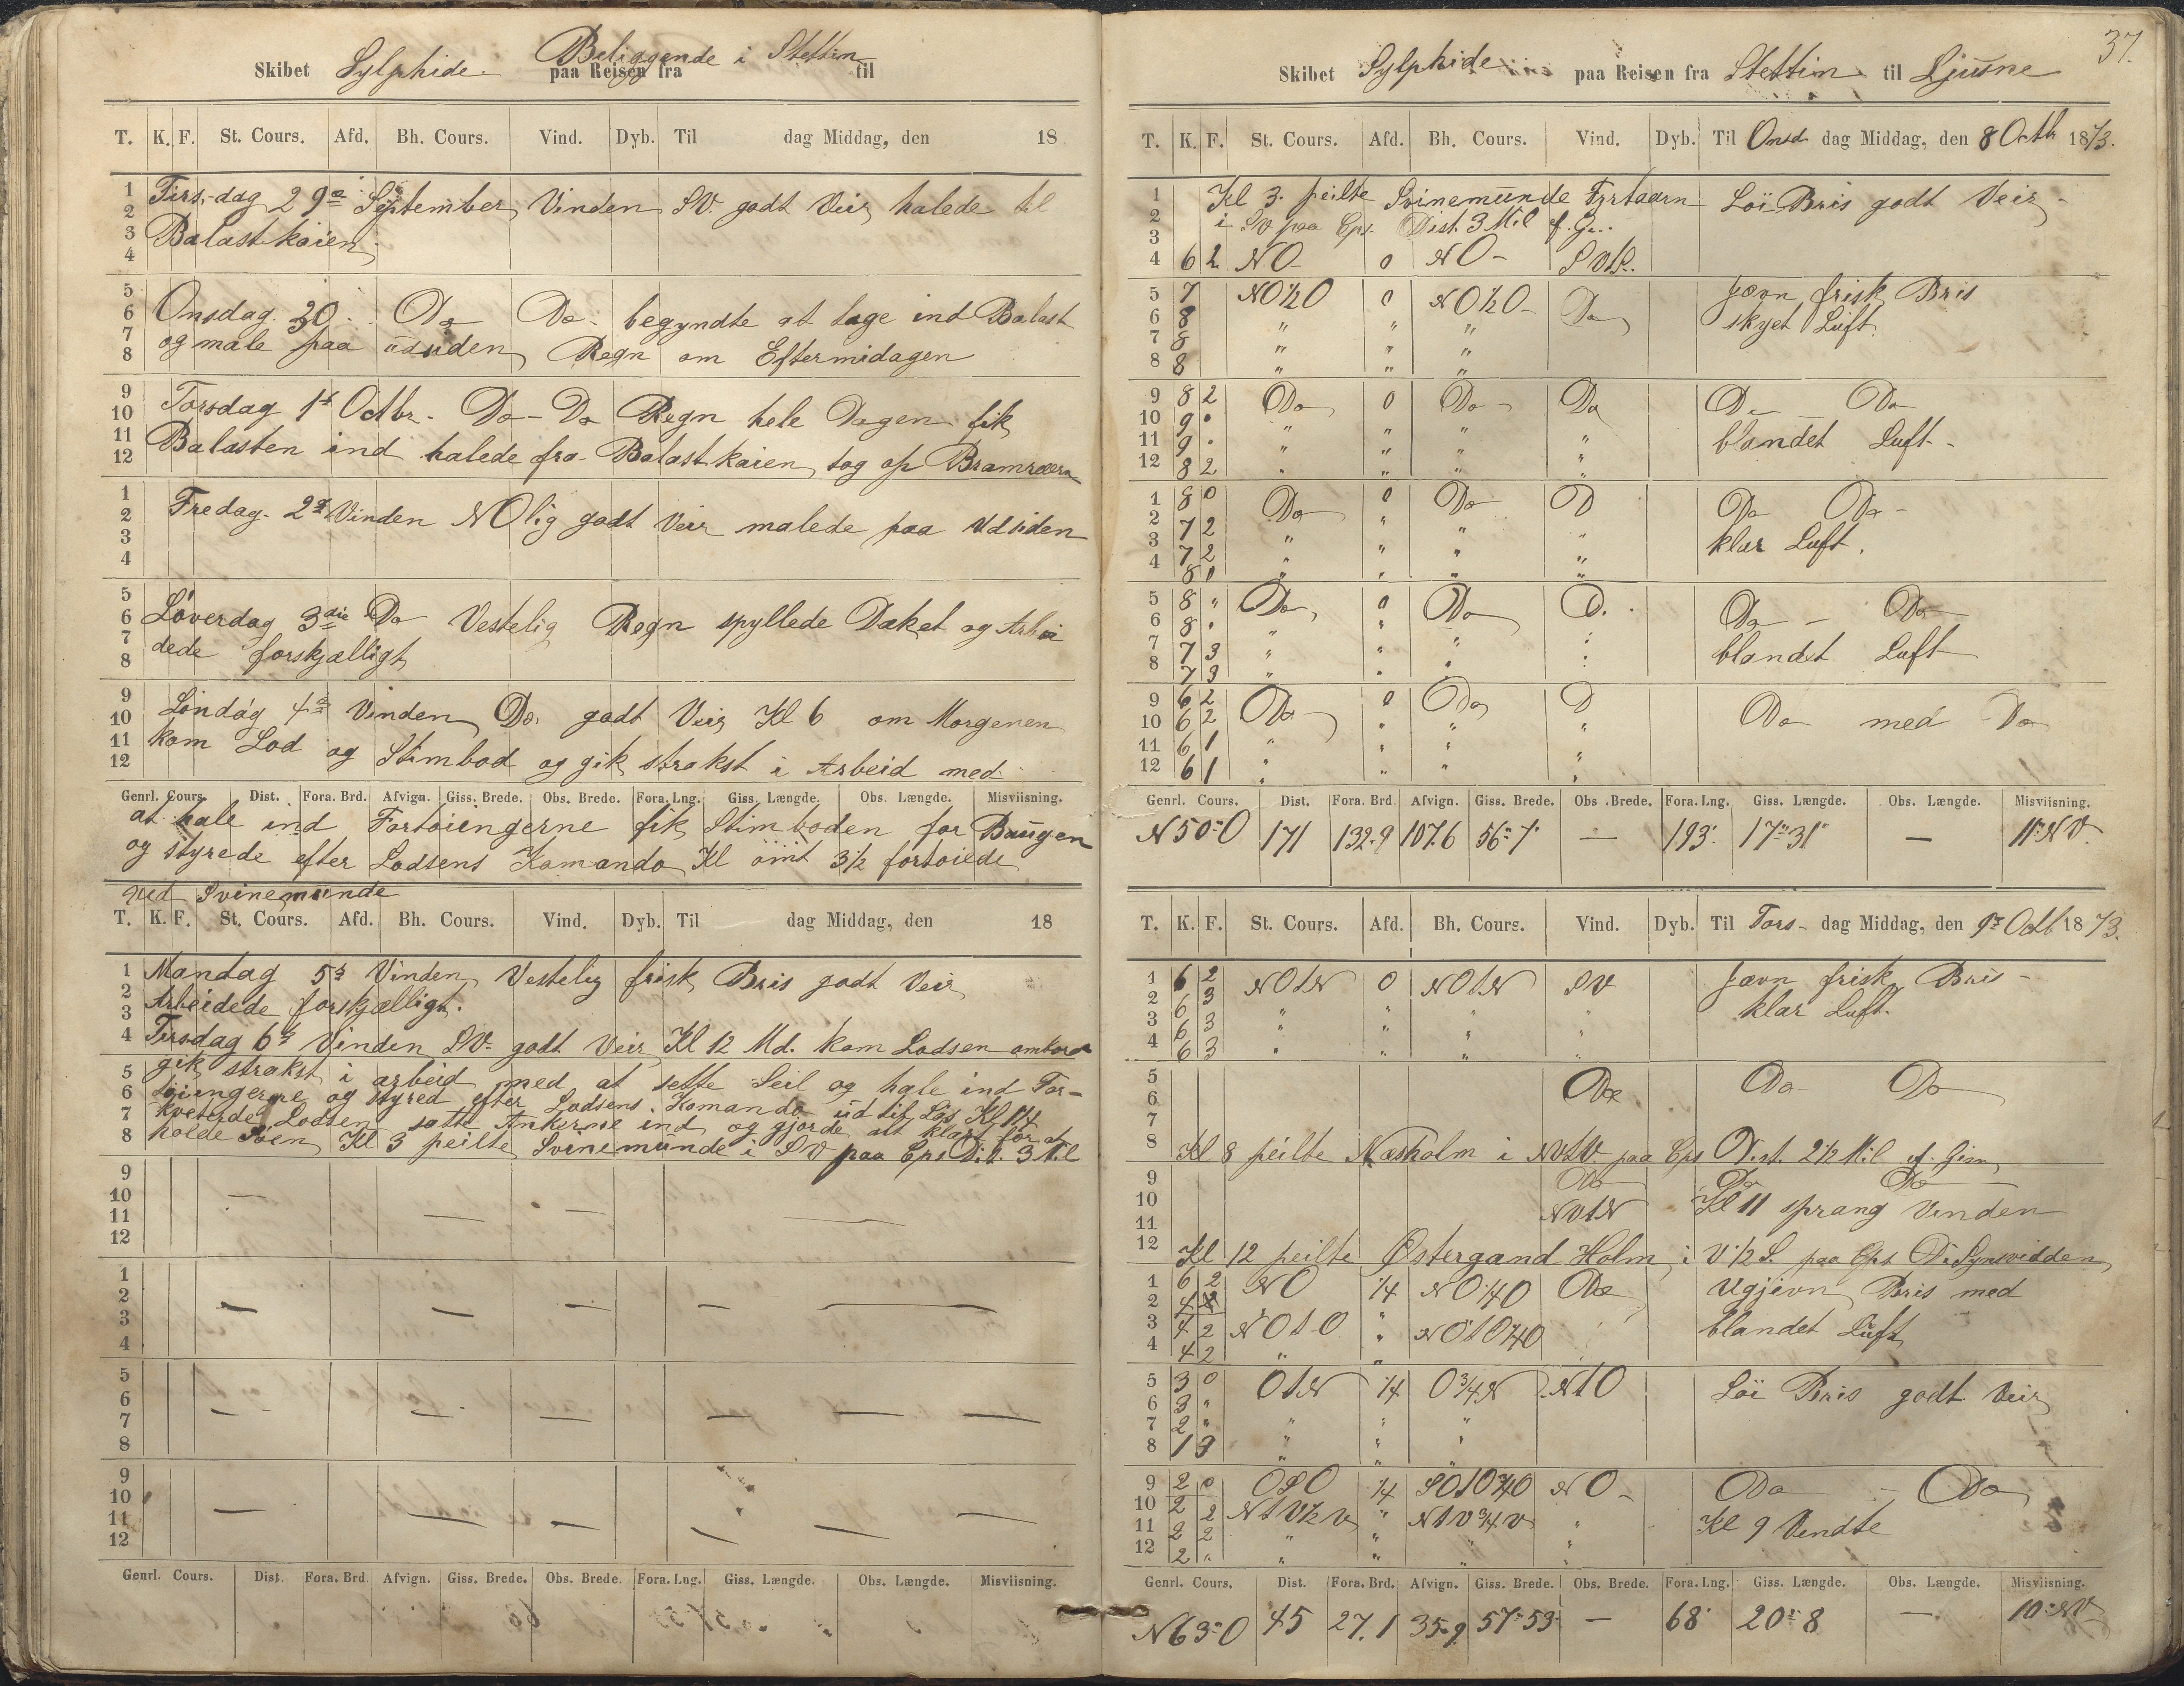 Skibet Sylphide Beliggende i Stettin paa Reisen fra til
T. K. F. St. Cours. Afd. Bh. Cours. Vind. Dyb. Til dag Middag, den 18
1 Tirs-dag 29de September Vinden SV. godt Veir halede til
2
3 Balastkaien
4
5
6 Onsdag 30 Do Do begyndte at tage ind Balast
7 og male paa udsiden Regn om Eftermidagen
8
9
10 Torsdag 1st Octbr. Do - Do Regn hele Dagen fik
11 Balasten ind halede fra Balastkaien tog op Bramræern
12
1
2 Fredag 2d Vinden NOlig godt Veir malede paa Udsiden
3
4
5
6 Löverdag 3die Do Vestelig Regn spyllede Dæket og Arbei
7 dede forskjælligt
8
9
10 Söndag 4de Vinden Do godt Veir Kl 6 om Morgenen
11 kom Lod og Stimbod og gik strakst i Arbeid med
12
Genrl. Cours. Dist. Fora. Brd. Afvign. Giss. Brede. Obs. Brede. Fora. Lng. Giss. Længde. Obs. Længde. Misviisning.
at hale ind Fortöiengerne fik Stimboden for Baugen
og styrede efter Lodsens Komando Kl omt 3 1/2 fortöiede
ved Svinemunde
T. K. F. St. Cours. Afd. Bh. Cours. Vind. Dyb. Til dag Middag, den 18
1 Mandag 5te Vinden Vestelig frisk Bris godt Veir
2
3 Arbeidede forskjælligt.
4 Tirsdag 6te Vinden SV. godt Veir Kl 12 Md. kom Lodsen ombord
5 gik strakst i arbeid med at sette Seil og hale ind For-
6 töiengerne og styred efter Lodsens Komando ud til Kl 1/4
7 Lodsen satte Ankerne ind og gjorde alt klart for at
8 holde Söen Kl 3 peilte Svinemünde i SV paa Cps Dist. 3 Mil
9
10
11
12
1
2
3
4
5
6
7
8
9
10
11
12
Genrl. Cours. Dist. Fora. Brd. Afvign. Giss. Brede. Obs. Brede. Fora. Lng. Giss. Længde. Obs. Længde. Misviisning.
37.
Skibet Sylphide paa Reisen fra Stettin til Ljusne
T. K. F. St. Cours. Afd. Bh. Cours. Vind. Dyb. Til Onsd dag Middag, den 8 Octb 1873.
1 Kl 3 peilte Svinemünde Fyrtaarn Löi Bris godt Veir
2 i SV paa Cps. Dist. 3 Mil
3
4 6 2 NO 0 NO
5 7 NO 1/2 O 0 NO 1/2 O Do Jævn frisk Bris
6 8 " " " skyet Luft
7 8 " " "
8 8 " " "
9 8 2 Do 0 Do Do Do Do
10 9 " " " blandet Luft
11 9 " " " "
12 8 2 " " " "
1 8 0 Do 0 Do D Do Do
2 7 2 " " " " klar Luft.
3 7 2 " " " "
4 8 0 " " " "
5 8 " Do 0 Do D. Do - Do
6 8 " " " "
7 7 3 " " " blandet Luft
8 7 3 " " "
9 6 2 Do 0 Do D Do med Do
10 6 2 " " " "
11 6 1 " " " "
12 6 1 " " " "
Genrl. Cours. Dist. Fora. Brd. Afvign. Giss. Brede. Obs. Brede. Fora. Lng. Giss. Længde. Obs. Længde. Misviisning.
N 50° O 171 132.9 107.6 56° 7' — 193' 17° 31' — 11° NV
T. K. F. St. Cours. Afd. Bh. Cours. Vind. Dyb. Til Tors- dag Middag, den 9de Octb 1873.
1 6 2 NOtN 0 NOtN SV Jævn frisk Bris
2 6 3 " " " " klar Luft.
3 6 3 " " "
4 6 3 " " "
5 Do Do Do
6
7
8 Kl 8 peilte Næsholm i paa Cps Dist. 2 1/2 Mil
9 Do Do Do
10 NVtN Kl 11 sprang Vinden
11
12 Kl 12 peilte Östergand Holm i V 1/2 S. paa Cps D. Synsvidden
1 6 2 NO 1/4 NO 1/4 O Do Ugjevn Bris med
2 4
3 4 2 NOtO " NOtO 1/4 O blandet Luft
4 4 2 " "
5 3 0 OtN 1/4 O 3/4 N NtO Löi Bris godt Veir
6 3 "
7 2 " " " "
8 1 3 " " "
9 2 0 OSO 1/4 SOtO 3/4 O NO Do - Do
10 2 2 NtV 1/2 V " NtV 3/4 V Kl 9 Vendte
11 2 2 " " " "
12 2 " " " " "
Genrl. Cours. Dist. Fora. Brd. Afvign. Giss. Brede. Obs. Brede. Fora. Lng. Giss. Længde. Obs. Længde. Misviisning.
N 63° O 45 27.1 35.9 57° 53' — 68' 20° 8 — 10° NV